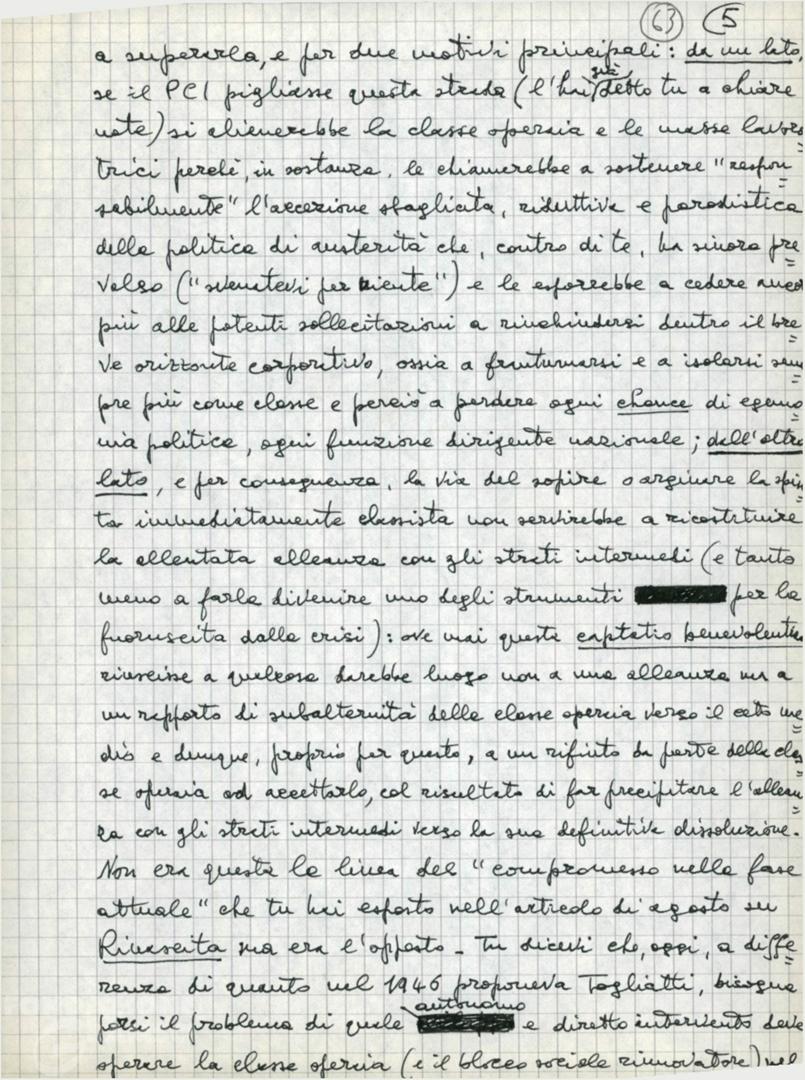 63 5
a superarla, e per due motivi principali: da un lato,
se il PCI pigliasse questa strada (l'hai già detto tu a chiare
note) si alienerebbe la classe operaia e le masse lavora
trici perché, in sostanza, le chiamerebbe a sostenere "respon
sabilmente" l'accezione sbagliata, riduttiva e parodistica
della politica di austerità che, contro di te, ha sinora pre
valso ("svenatevi per niente") e le esporrebbe a cedere ancor
più alle potenti sollecitazioni a rinchiudersi dentro il bre
ve orizzonte corporativo, ossia a frantumarsi e a isolarsi sem
pre più come classe e perciò a perdere ogni chance di egemo
nia politica, ogni funzione dirigente nazionale; dall'altro
lato, e per conseguenza, la via del sopire o arginare la spin
ta immediatamente classista non servirebbe a ricostituire
la allentata alleanza con gli strati intermedi (e tanto
meno a farla divenire uno degli strumenti per la
fuoruscita dalla crisi): ove mai questa captatio benevolentiae
riuscisse a qualcosa darebbe luogo non a una alleanza ma a
un rapporto di subalternità della classe operaia verso il ceto me
dio e dunque, proprio per questo, a un rifiuto da parte della clas
se operaia ad accettarlo, col risultato di far precipitare l'allean
za con gli strati intermedi verso la sua definitiva dissoluzione.
Non era questa la linea del "compromesso nella fase
attuale" che tu hai esposto nell'articolo di agosto su
Rinascita ma era l'opposto - Tu dicevi che, oggi, a diffe
renza di quanto nel 1946 proponeva Togliatti, bisogna
porsi il problema di quale autonomo e diretto intervento deve
operare la classe operaia (e il blocco sociale rinnovatore) nel